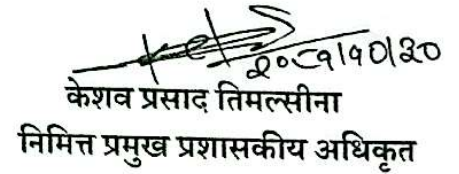 २०८१।१०।३०
केशव प्रसाद तिमल्सीना
निमित्त प्रमुख प्रशासकीय अधिकृत